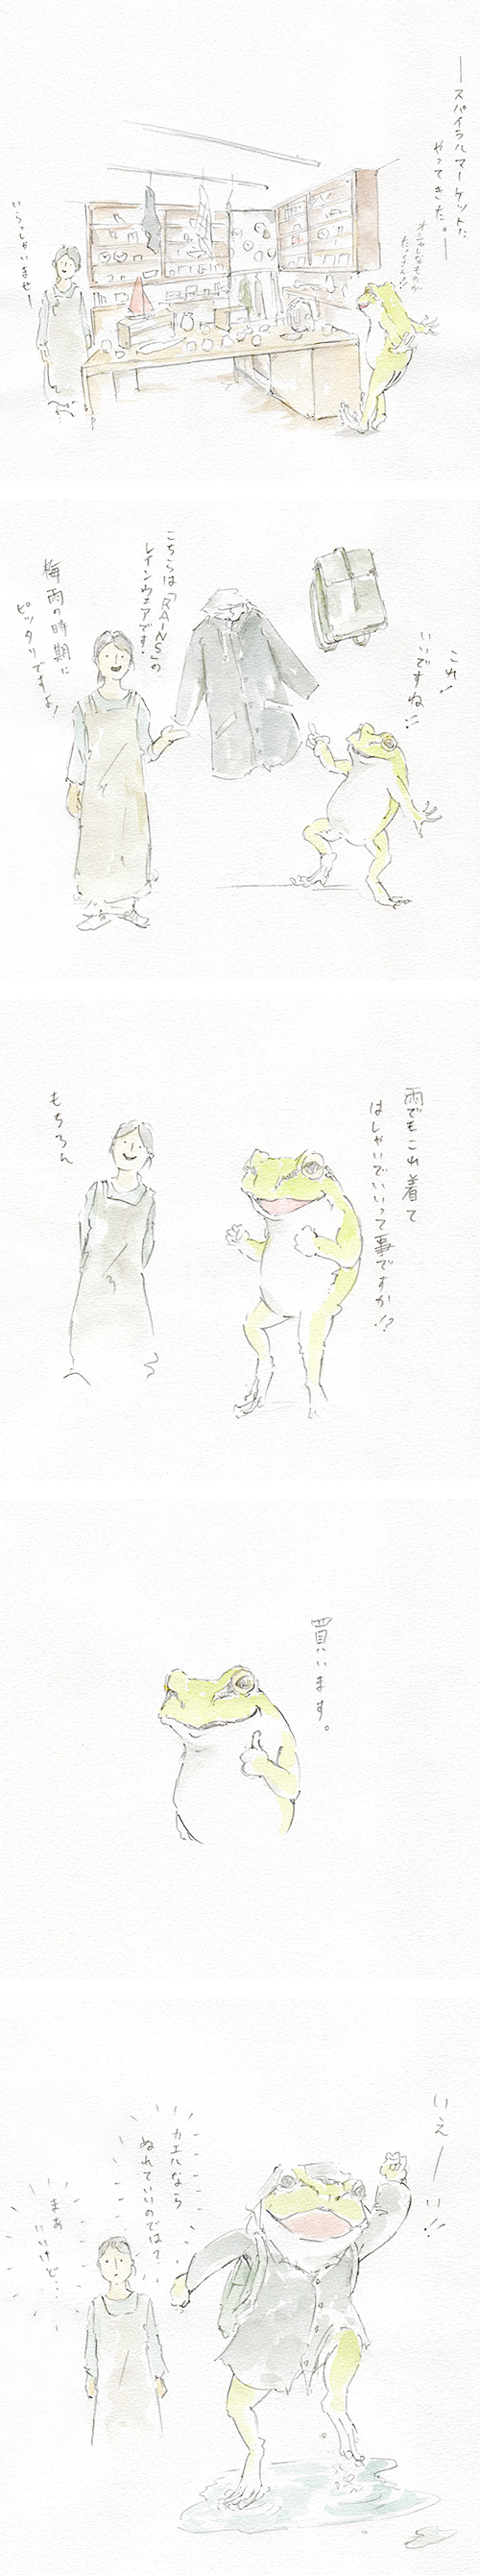 ―スパイラルマーケットに
やってきた。―
オシャレなものが
たくさん!!
いらっしゃいませー
これ!
いいですね!!
こちらは「RAINS」の
レインウェアです!
梅雨の時期に
ピッタリですよ!
雨でもこれ着て
はしゃいでいいって事ですか!?
もちろん
買います。
いえーい!!
カエルなら
ぬれていいのでは?
まあ
いいけど…